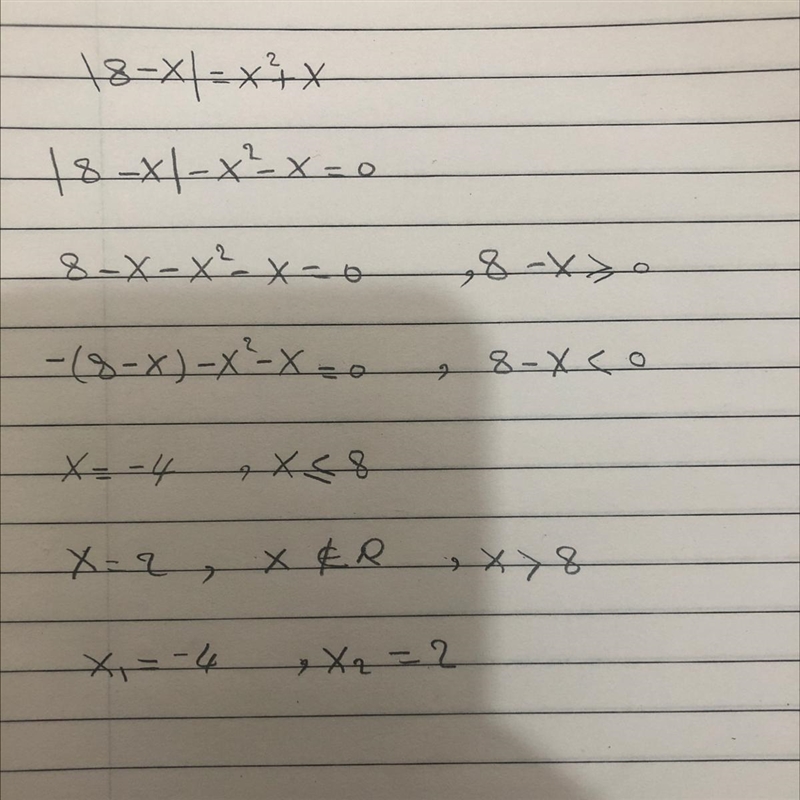 |8-x|=x²+x
|8-x|-x²-x=0
8-x-x²-x=0 ,8-x⩾0
-(8-x)-x²-x=0 , 8-x<0
x=-4 , x≤8
x=2 , x∉R , x>8
x₁=-4 ,x₂=2